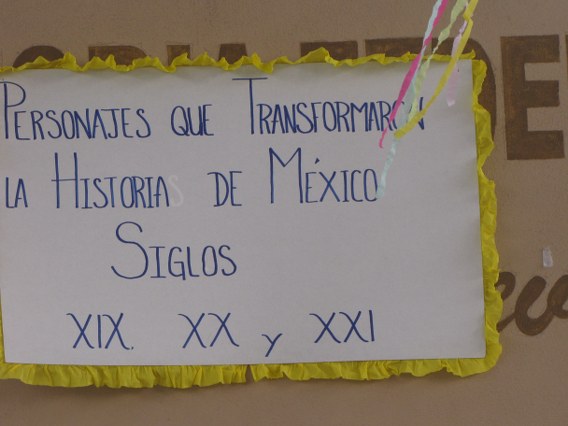 PERSONAJES QUE TRANSFORMARON
LA HISTORIA DE MÉXICO
SIGLOS
XIX. XX y XXI